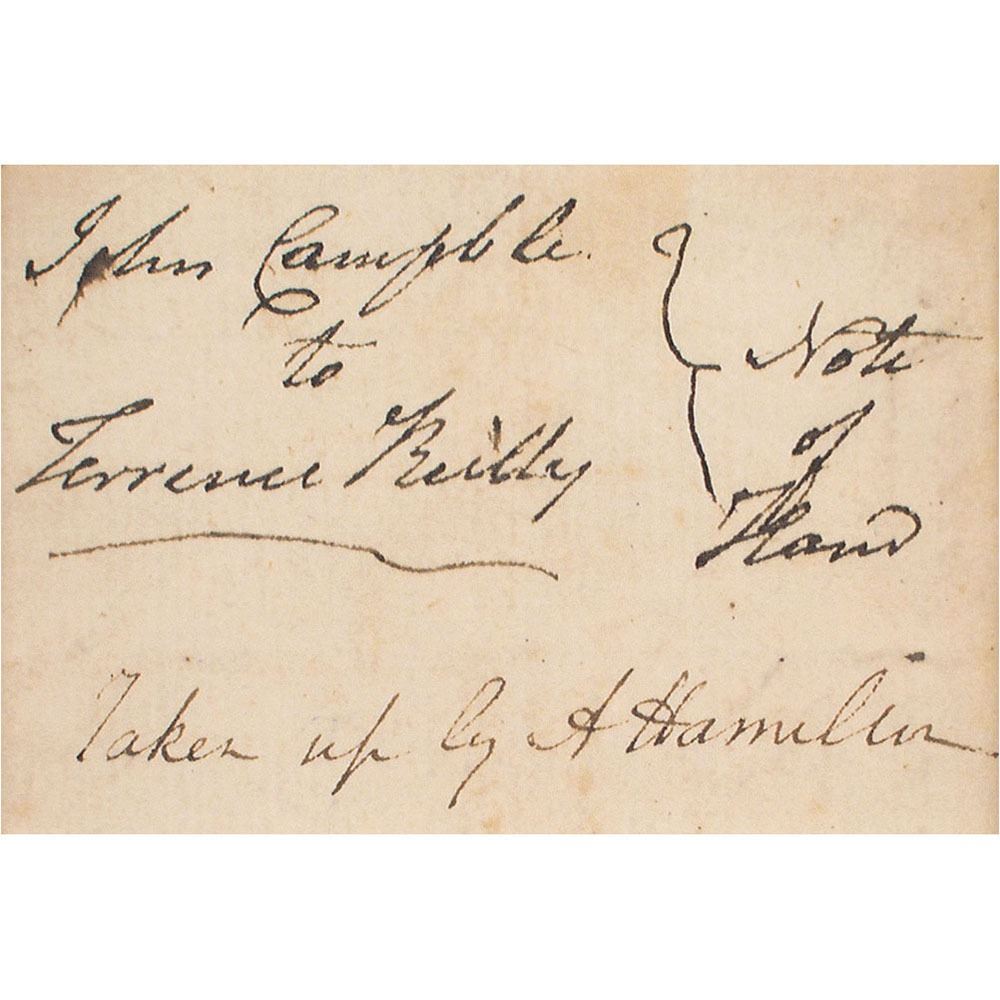 John Campble
to
Terrence Reilly
Note
of
Hand
Taken up by A Hamilton